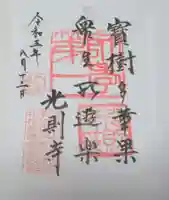 寳樹多華菓
衆生所遊楽
光則寺
令和三年
八月十二日